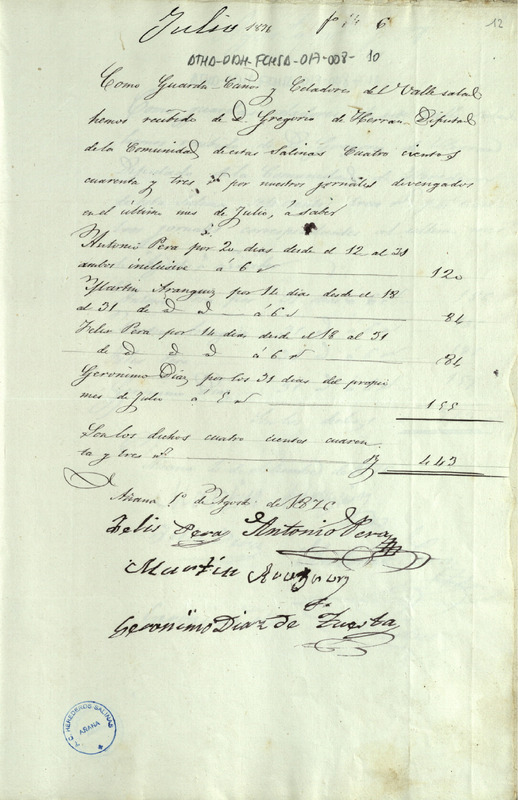 Julio 1876 fº 14 6 12
ATHA-DAH-FCHSA-017-008-10
Como Guarda-Caños y Celadores de Vº Valle salad
hemos recibido de D. Gregorio de Herran Diputad
de la Comunidad de estas Salinas Cuatro cientos
cuarenta y tres rs por nuestros jornales devengados
en el último mes de Julio, á saber
Antonio Pera por 20 dias desde el 12 al 31
ambos inclusive á 6 r 120
Martin Aranguiz por 14 dias desde el 18
al 31 de id id á 6 r 84
Felix Pera por 14 dias desde el 18 al 31
de id id id á 6 r 84
Geronimo Diaz por los 31 dias del propio
mes de Julio á 5 r 155
Son los dichos cuatro cientos cuaren
ta y tres rs 443
Añana 1º de Agosto de 1876
Felis Pera Antonio Pera
Martín Aranguiz
Geronimo Diaz de Tuesta
A.C. HEREDEROS SALINAS
AÑANA